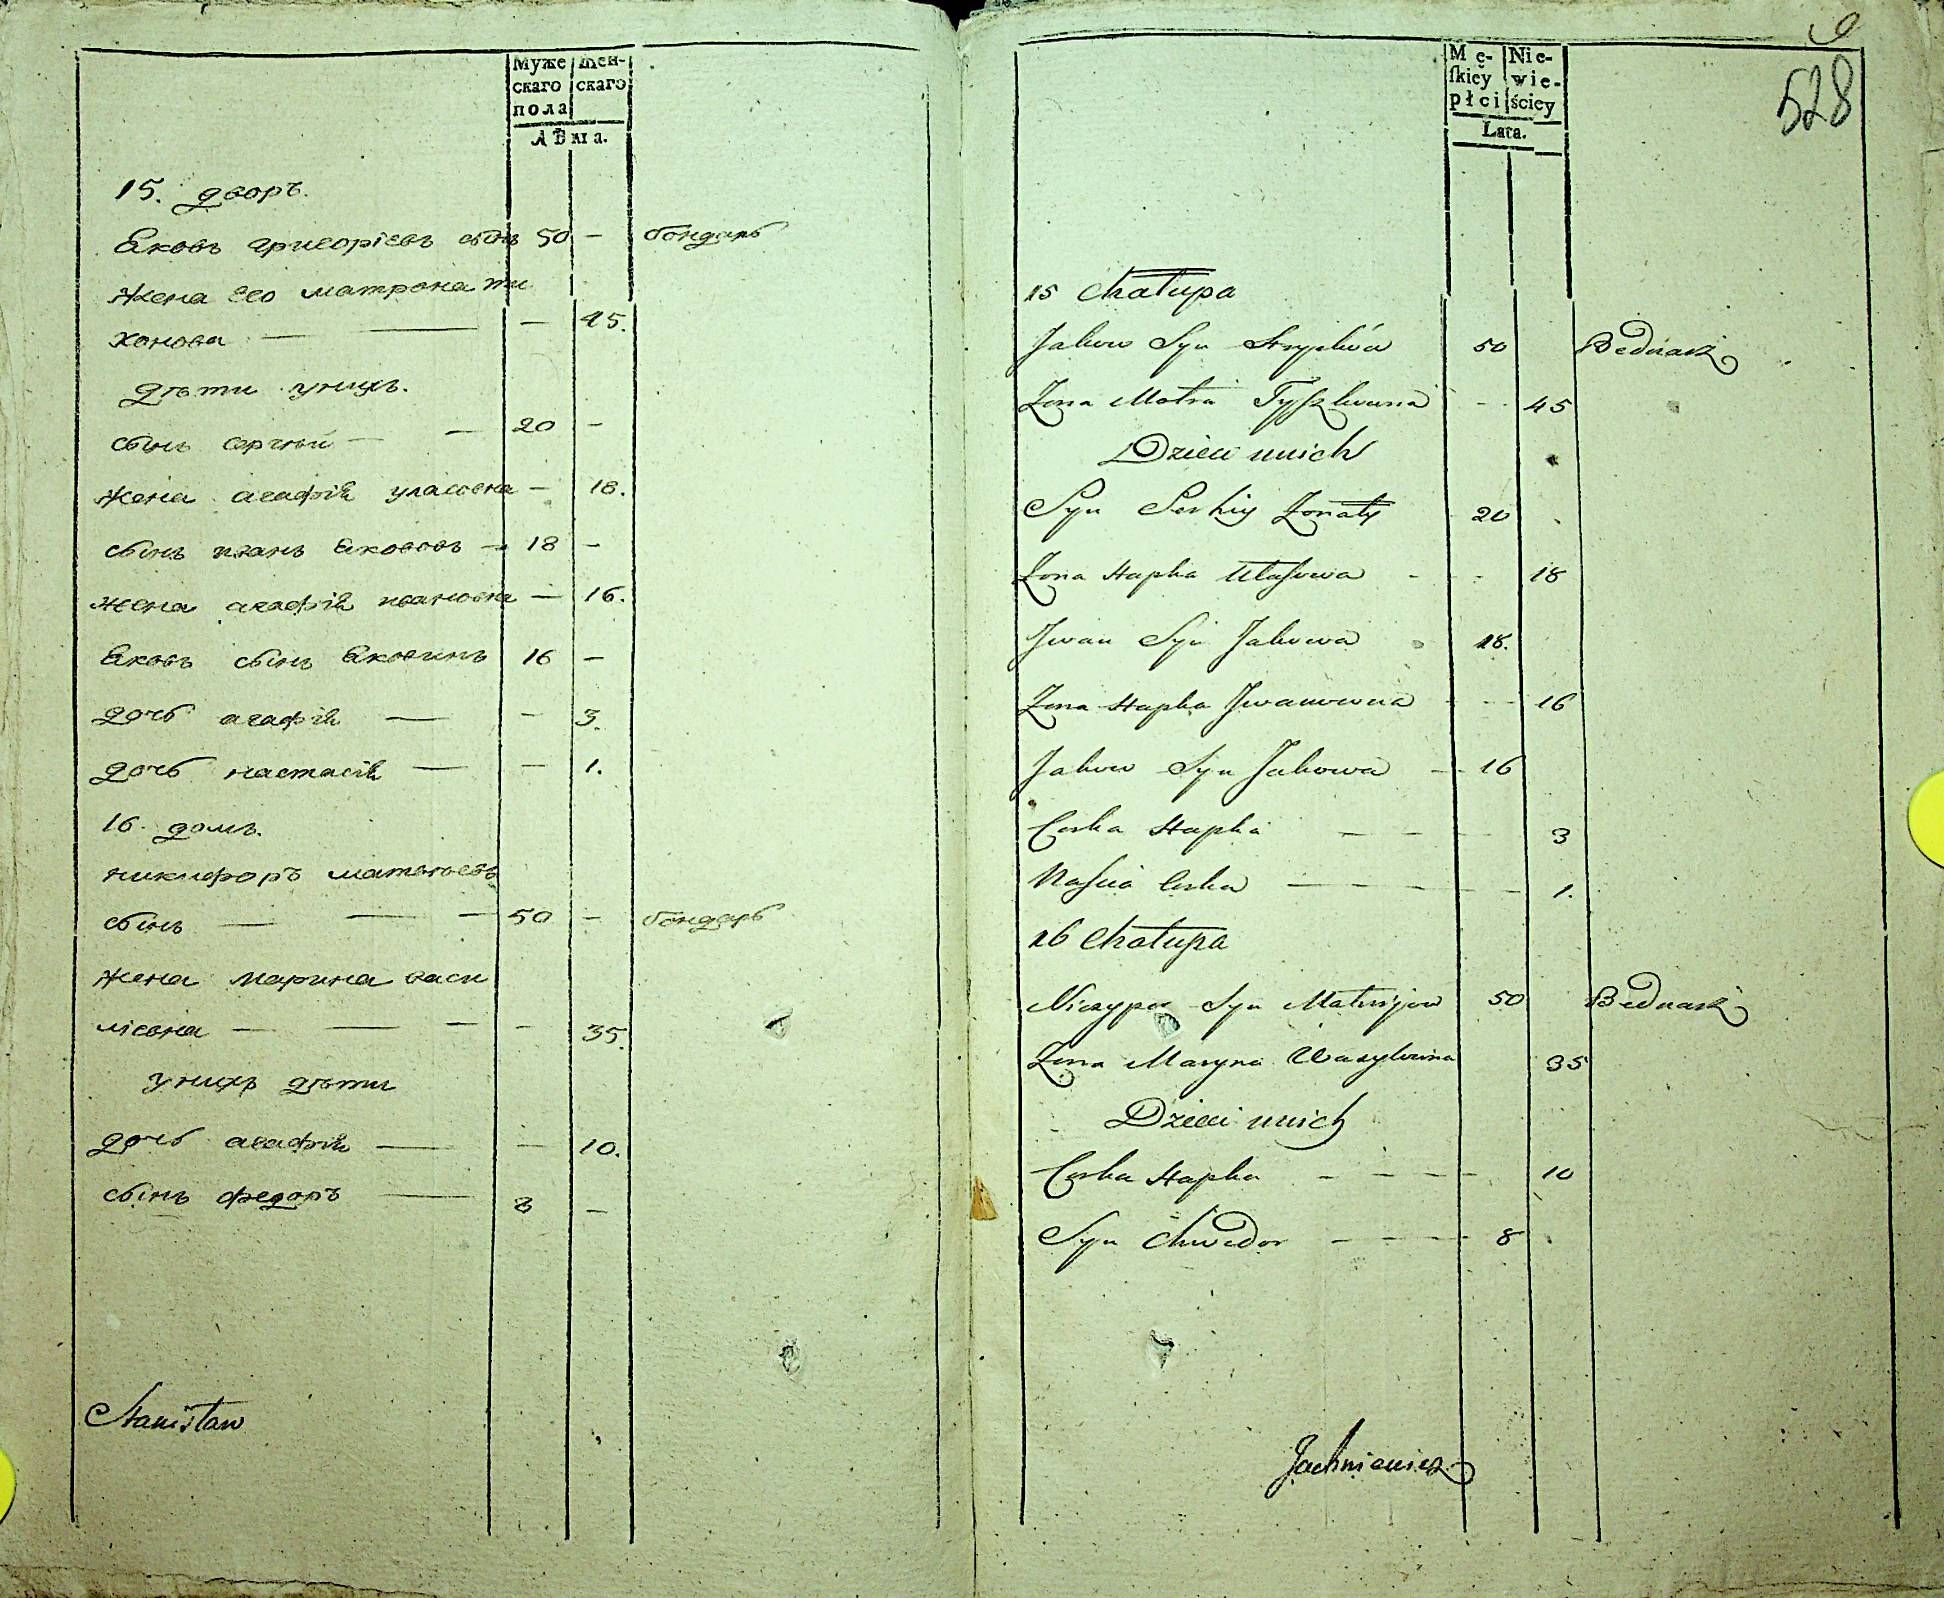 Муже
скаго
пола
Жен-
скаго
Лѣта.
15. дворъ.
Яковъ григоріевъ сынъ 50 — бондарь
жена его матрона ти
хонова — — — 45.
дѣти унихъ.
сынъ сергѣй — — 20 —
жена агафія уласовна — 18.
сынъ иванъ яковов — 18 —
жена агафія ивановна — 16.
Яковъ сынъ яковинъ 16 —
дочь агафія — — 3.
дочь настасія — — 1.
16. домъ.
никифоръ матвѣевъ
сынъ — — — 50 — бондарь
жена марина васи
ліевна — — — — 35.
унихъ дѣти
дочь агафія — — 10.
сынъ федоръ — 8 —
Stanisław
528
Mę-
skiey
płci
Nie-
wie-
ściey
Lata.
15 Chałupa
Jakow Syn Hryhów 50 Bednarz
Żona Motra Tyszkowna - - 45
Dzieci unich
Syn Serhiy Żonaty 20
Żona Hapka Ułasowa - - 18
Jwan Syn Jakowa 18.
Żona Hapka Jwanowna - - - 16
Jakow Syn Jakowa — 16
Corka Hapka — — — 3
Nascia Corka — — — — 1.
16 Chałupa
Niczypor Syn Matwijow 50 Bednarz
Żona Maryna Wasylowna 35
Dzieci unich
Corka Hapka - - - - 10
Syn Chwedor - - - - 8
Jachniewicz